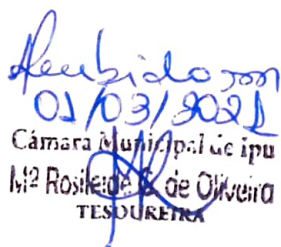 Recebido em
01/03/2021
Câmara Municipal de Ipu
Mª Rosileide S. de Oliveira
TESOUREIRA